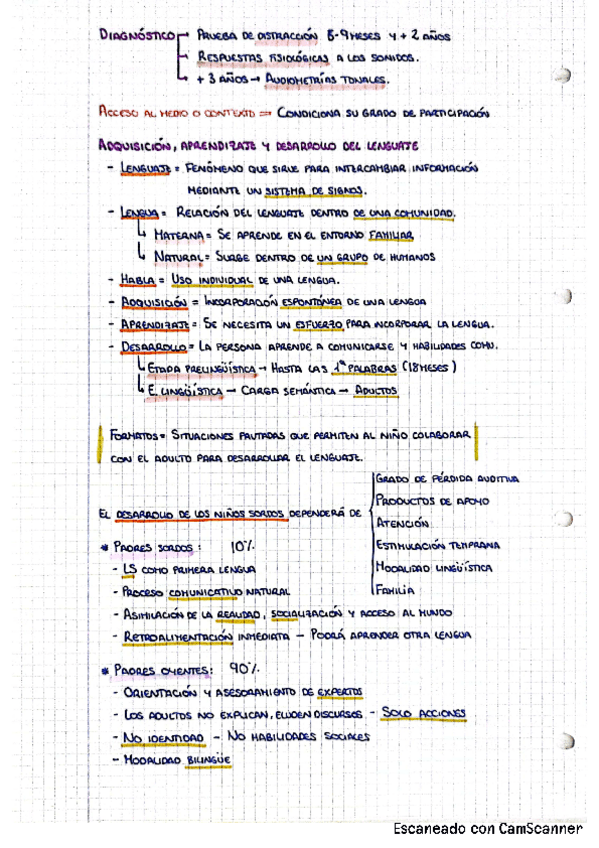 DIAGNÓSTICO → PRUEBA DE DISTRACCIÓN 8-9 MESES Y + 2 AÑOS
→ RESPUESTAS FISIOLÓGICAS A LOS SONIDOS.
→ + 3 AÑOS → AUDIOMETRÍAS TONALES.
ACCESO AL MEDIO O CONTEXTO ⇒ CONDICIONA SU GRADO DE PARTICIPACIÓN
ADQUISICIÓN, APRENDIZAJE Y DESARROLLO DEL LENGUAJE
- LENGUAJE = FENÓMENO QUE SIRVE PARA INTERCAMBIAR INFORMACIÓN
MEDIANTE UN SISTEMA DE SIGNOS.
- LENGUA = RELACIÓN DEL LENGUAJE DENTRO DE UNA COMUNIDAD.
↳ MATERNA = SE APRENDE EN EL ENTORNO FAMILIAR
↳ NATURAL = SURGE DENTRO DE UN GRUPO DE HUMANOS
- HABLA = USO INDIVIDUAL DE UNA LENGUA.
- ADQUISICIÓN = INCORPORACIÓN ESPONTÓNEA DE UNA LENGUA
- APRENDIZAJE = SE NECESITA UN ESFUERZO PARA INCORPORAR LA LENGUA.
- DESARROLLO = LA PERSONA APRENDE A COMUNICARSE Y HABILIDADES COMU.
↳ ETAPA PRELINGÜÍSTICA → HASTA LAS 1ᵃˢ PALABRAS (18 MESES)
↳ E. LINGÜÍSTICA → CARGA SEMÁNTICA → ADULTOS
FORMATOS = SITUACIONES PAUTADAS QUE PERMITEN AL NIÑO COLABORAR
CON EL ADULTO PARA DESARROLLAR EL LENGUAJE.
EL DESARROLLO DE LOS NIÑOS SORDOS DEPENDERÁ DE
GRADO DE PÉRDIDA AUDITIVA
PRODUCTOS DE APOYO
ATENCIÓN
ESTIMULACIÓN TEMPRANA
MODALIDAD LINGÜÍSTICA
FAMILIA
* PADRES SORDOS: 10%
- LS COMO PRIMERA LENGUA
- PROCESO COMUNICATIVO NATURAL
- ASIMILACIÓN DE LA REALIDAD, SOCIALIZACIÓN Y ACCESO AL MUNDO
- RETROALIMENTACIÓN INMEDIATA - PODRÁ APRENDER OTRA LENGUA
* PADRES OYENTES: 90%
- ORIENTACIÓN Y ASESORAMIENTO DE EXPERTOS
- LOS ADULTOS NO EXPLICAN, ELUDEN DISCURSOS - SOLO ACCIONES
- NO IDENTIDAD - NO HABILIDADES SOCIALES
- MODALIDAD BILINGÜE
Escaneado con CamScanner